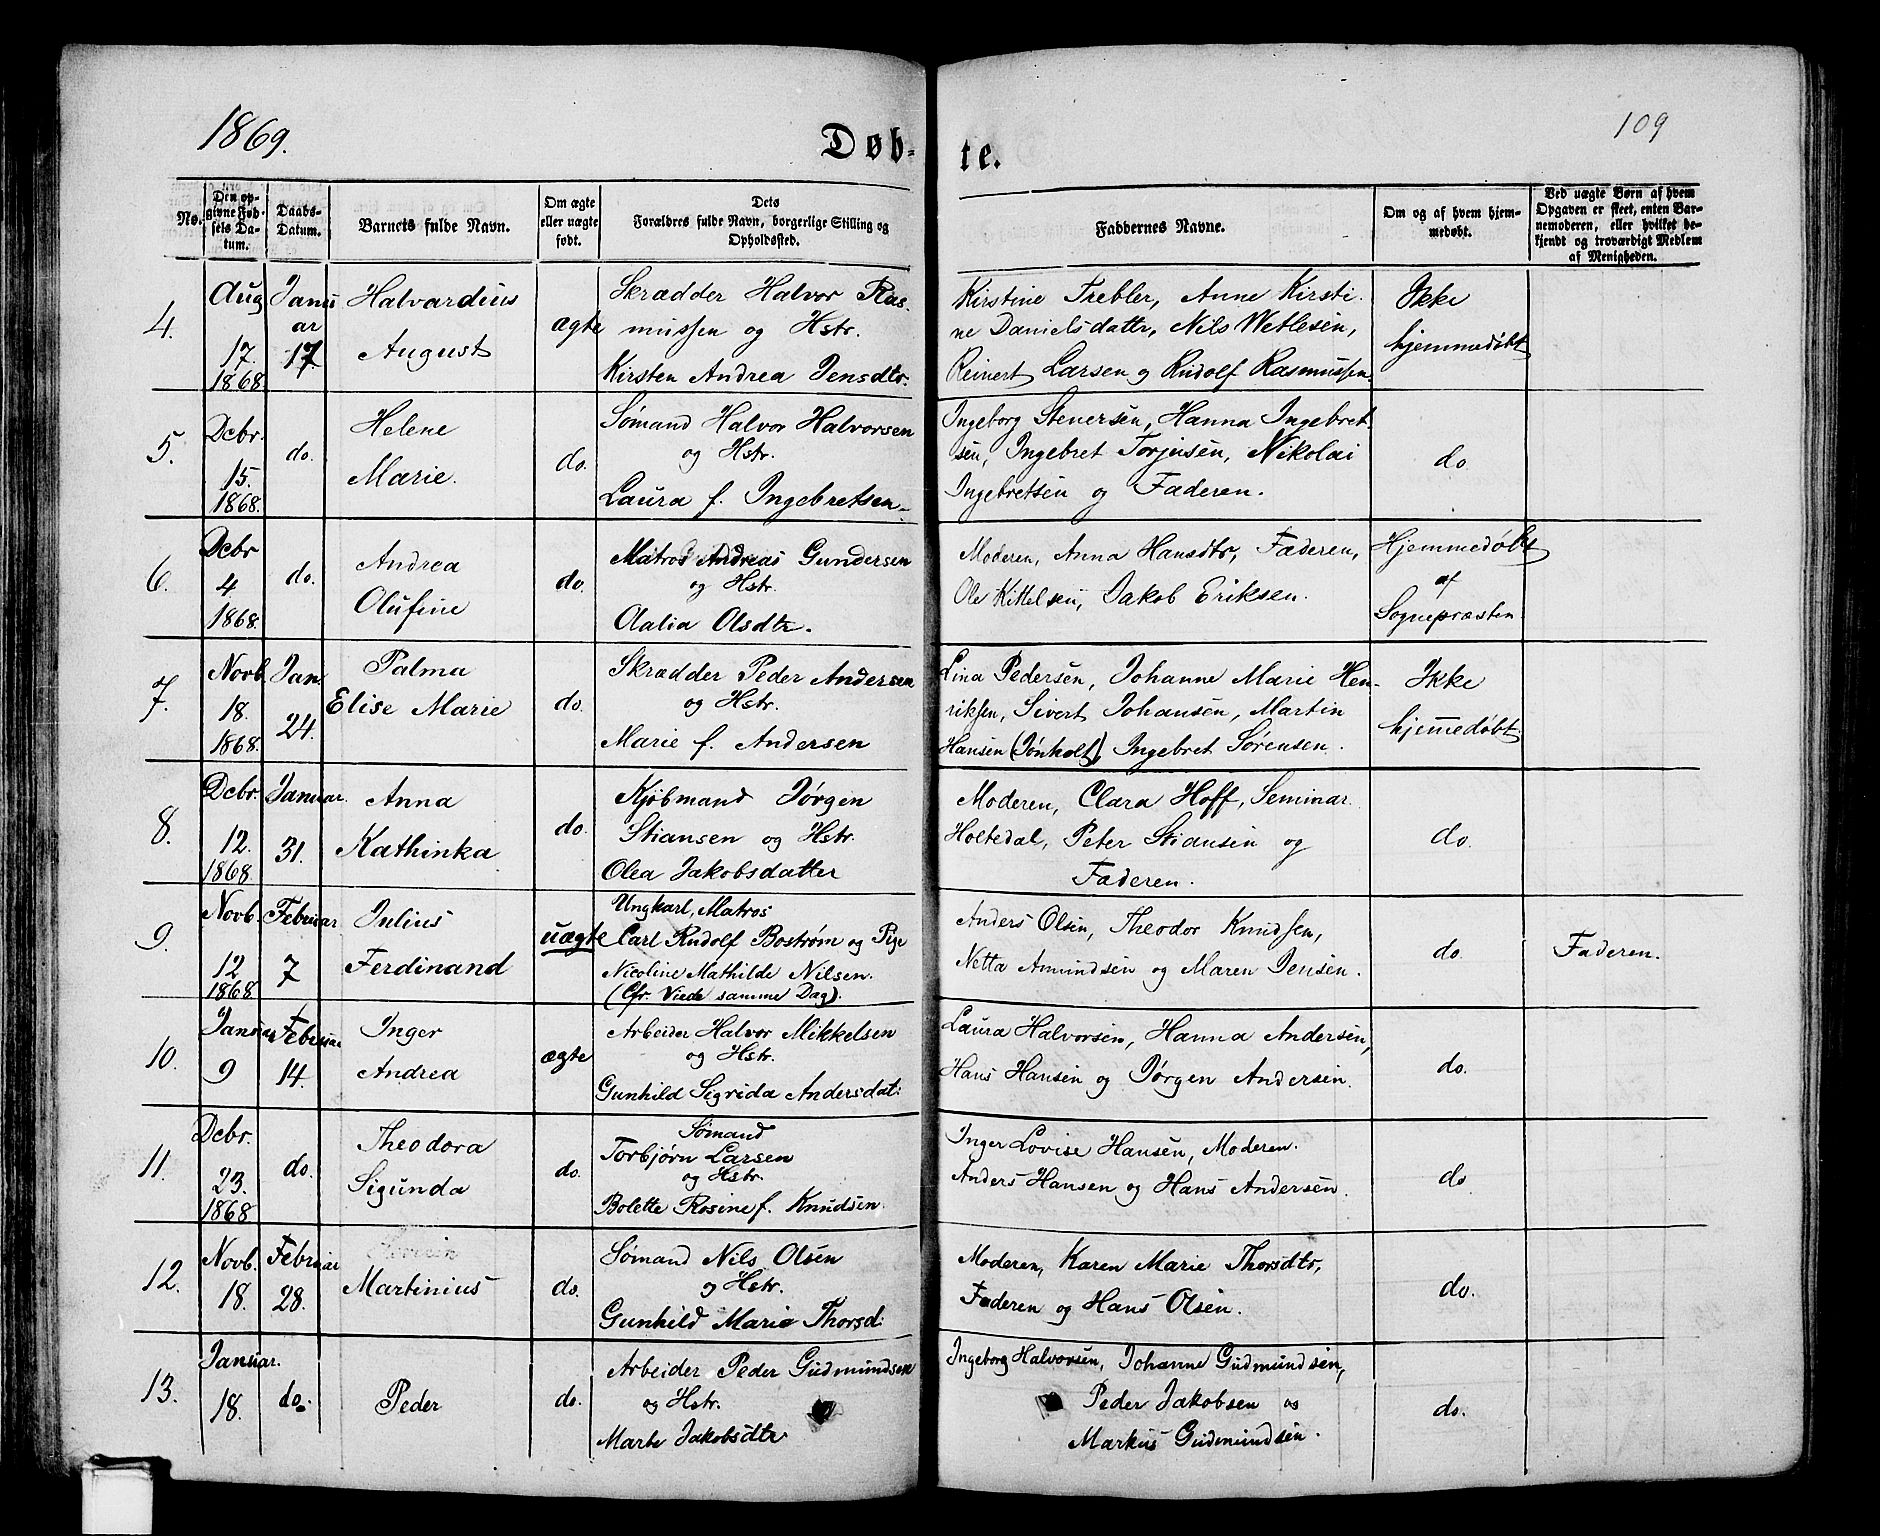 1869.
109
Døb-
te.
No.
Den op-
givne Fød-
sels Da-
tum.
Daabs-
Datum.
Barnets fulde Navn.
Om ægte
eller uægte
født.
Dets
Forældres fulde Navn, borgerlige Stilling og
Opholdssted.
Faddernes Navne.
Om og af hvem hjem-
medøbt.
Ved uægte Børn af hvem
Opgaven er skeet, enten Bar-
nemoderen, eller hvilket be-
kjendt og troværdigt Medlem
af Menigheden.
4.
Aug
17.
1868
Janu
ar
17.
Halvardius
August
ægte
Skrædder Halvor Ras-
mussen og Hstr.
Kirsten Andrea Jensdtr.
Kirstine Trebler, Anne Kirsti-
ne Danielsdattr, Nils Wetlesen,
Reinert Larsen og Rudolf Rasmussen.
Ikke
hjemmedøbt
5.
Dcbr.
15.
1868.
do.
Helene
Marie.
do.
Sømand Halvor Halvorsen
og Hstr.
Laura f. Ingebretsen.
Ingeborg Stenersen, Hanna Ingebret
sen, Ingebret Torjusen, Nikolai
Ingebretsen og Faderen.
do.
6.
Dcbr
4
1868.
do.
Andrea
Olufine
do.
Matros Andreas Gundersen
og Hstr.
Aalia Olsdtr.
Moderen, Anna Hansdtr, Faderen,
Ole Kittelsen, Jakob Eriksen.
Hjemmedøbt
af
Sognepræsten
7.
Novb
18.
1868.
Jan.
24.
Palma
Elise Marie
do.
Skrædder Peder Andersen
og Hstr.
Marie f. Andersen
Lina Pedersen, Johanne Marie Hen-
riksen, Sivert Johansen, Martin
Hansen (Jønholt), Ingebret Sørensen.
Ikke
hjemmedøbt.
8.
Dcbr.
12.
1868.
Januar.
31.
Anna
Kathinka
do.
Kjøbmand Jørgen
Stiansen og Hstr.
Olea Jakobsdatter
Moderen, Clara Hoff, Seminar.
Holtedal, Peter Stiansen og
Faderen.
do.
9.
Novb.
12
1868
Februar
7
Julius
Ferdinand
uægte
Ungkarl, Matros
Carl Rudolf Bostrøm og Pige
Nicoline Mathilde Nilsen.
(Cfr. Viede samme Dag).
Anders Olsen, Theodor Knudsen,
Netta Amundsen og Maren Jensen.
do.
Faderen.
10.
Januar
9
Februar
14.
Inger
Andrea
ægte
Arbeider Halvor Mikkelsen
og Hstr.
Gunhild Sigrida Andersdat:
Laura Halvorsen, Hanna Andersen,
Hans Hansen og Jørgen Andersen.
do.
11.
Dcbr.
23.
1868
do.
Theodora
Sigunda
do.
Sømand
Torbjørn Larsen
og Hstr.
Bolette Rosine f. Knudsen.
Inger Lovise Hansen, Moderen.
Anders Hansen og Hans Andersen.
do
12.
Novb.
18.
Februar
28.
Martinius
do.
Sømand Nils Olsen
og Hstr.
Gunhild Marie Thorsd:
Moderen, Karen Marie Thorsdtr,
Faderen og Hans Olsen.
do.
13.
Januar.
18.
do.
Peder
do.
Arbeider Peder Gudmundsen
og Hstr.
Marte Jakobsdtr
Ingeborg Halvorsen, Johanne Gudmundsen,
Peder Jakobsen og
Markus Gudmundsen.
do.